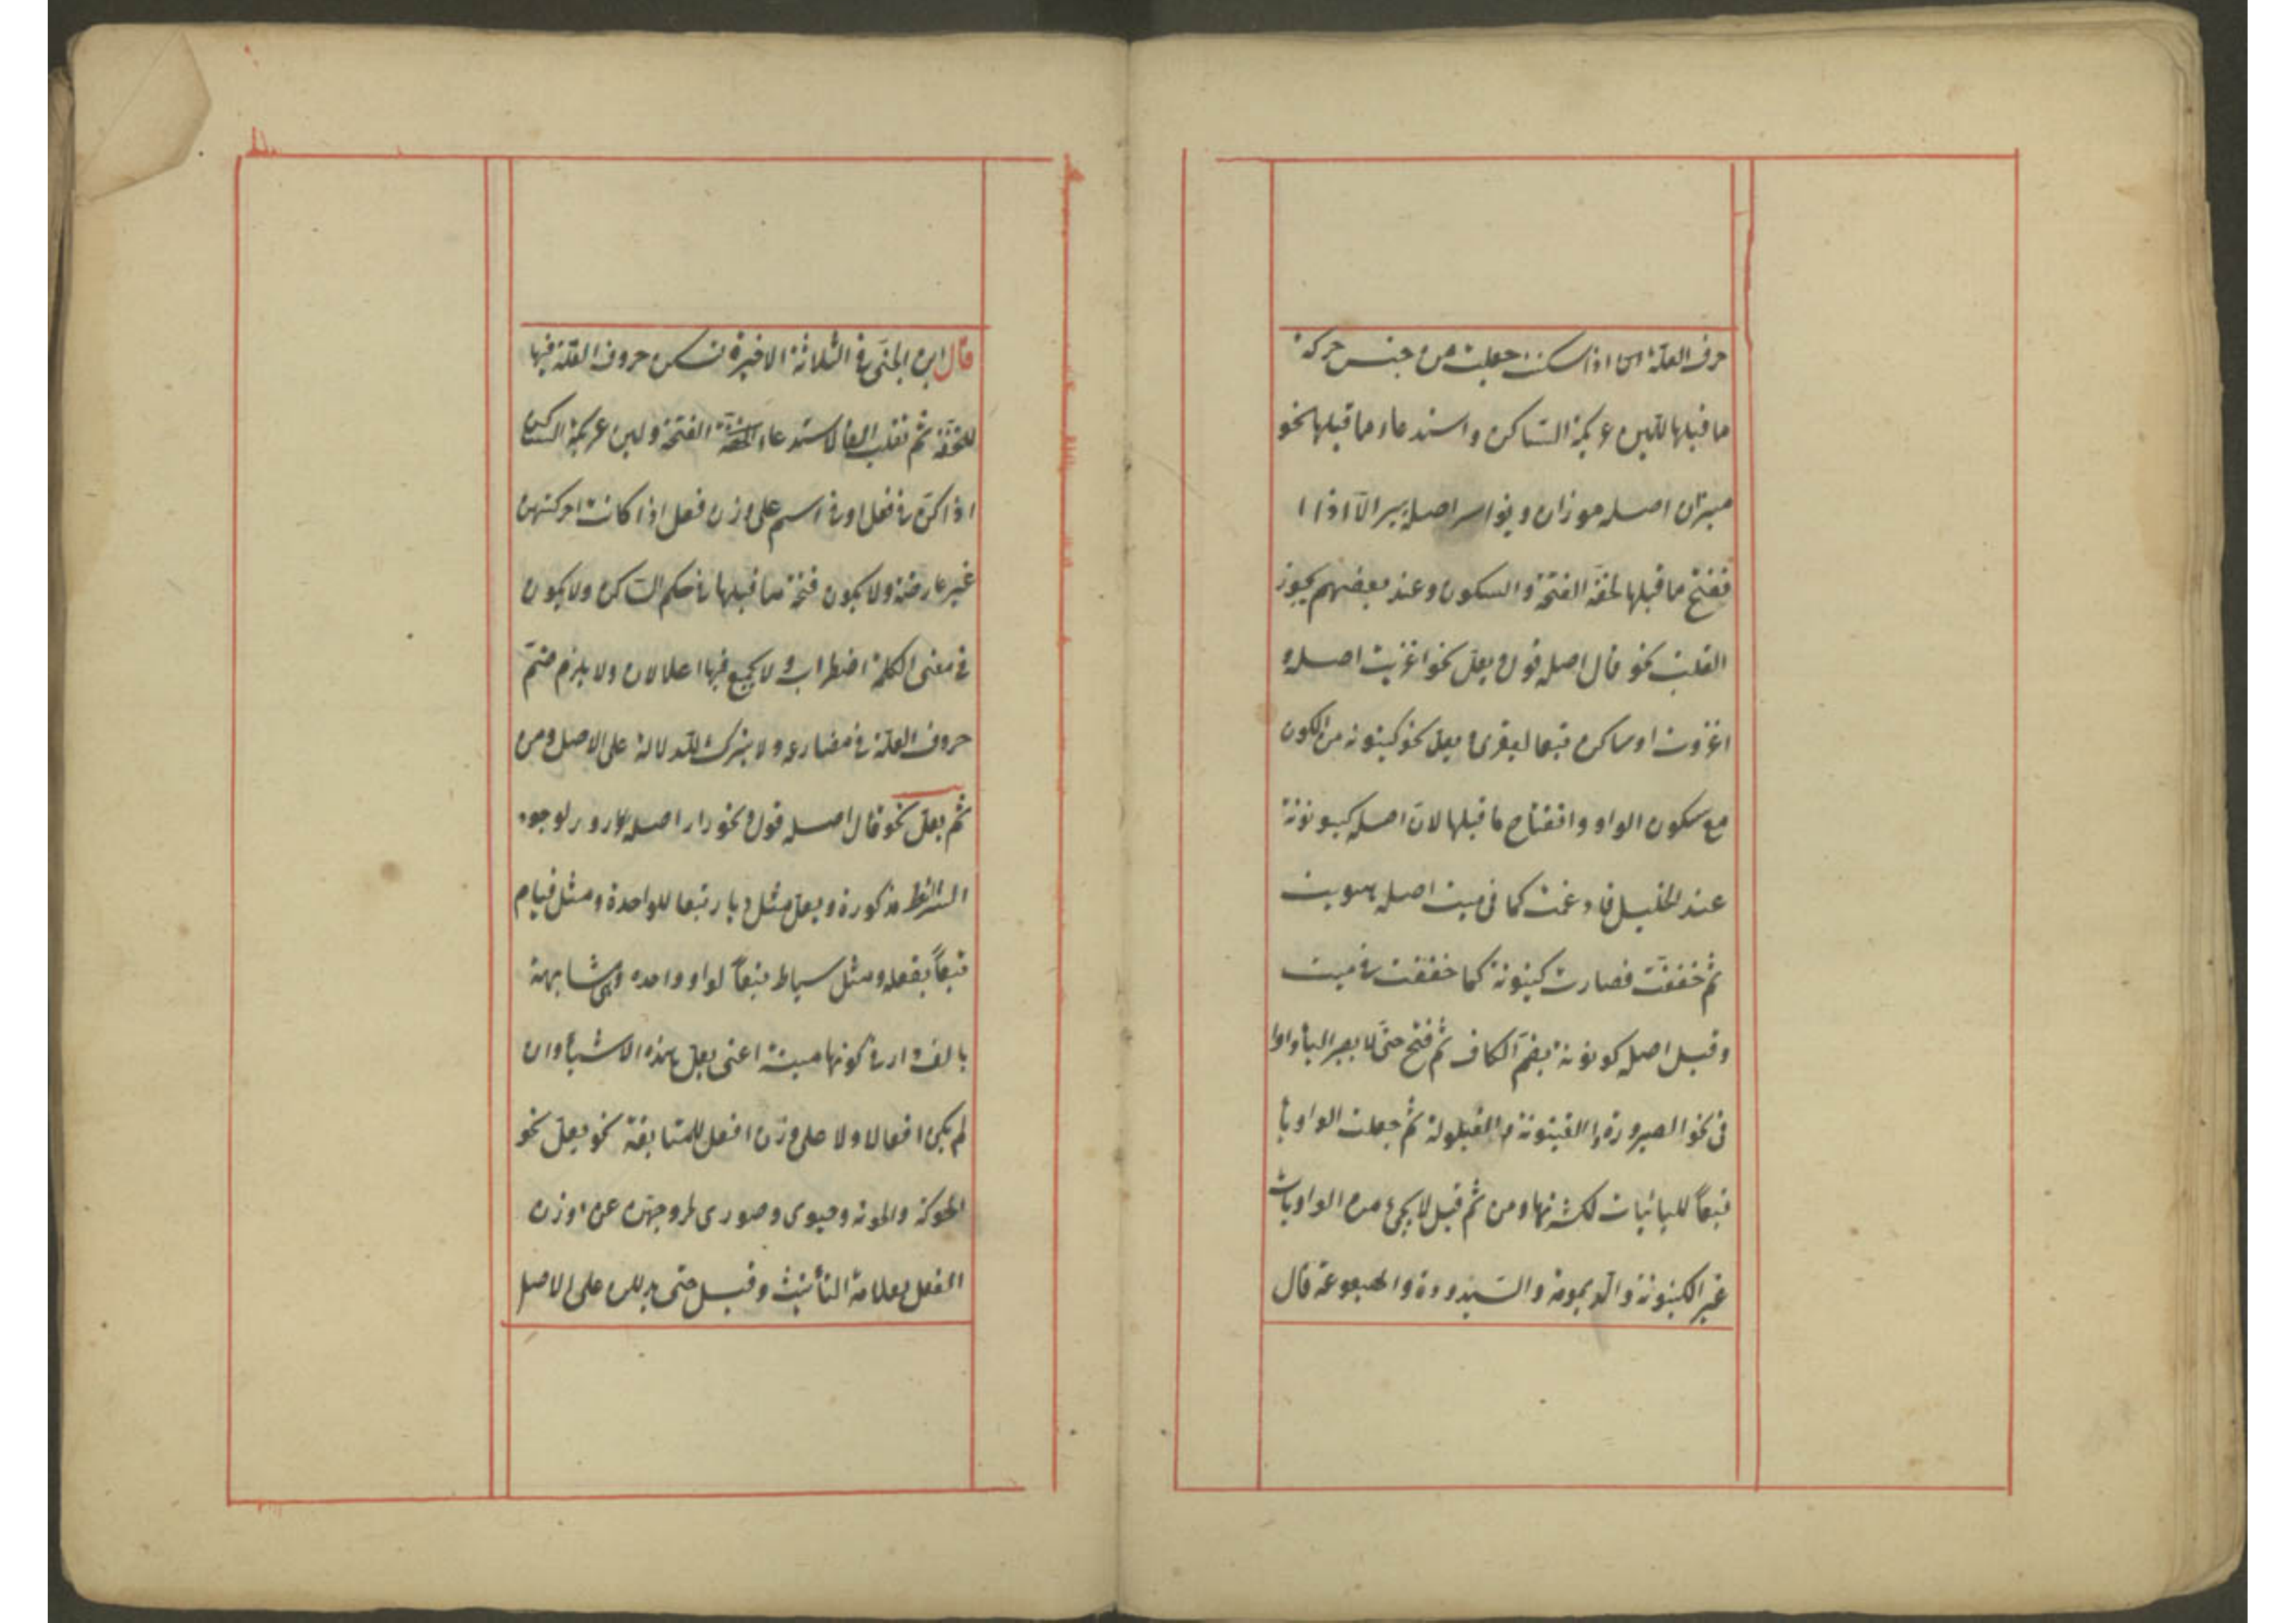 حرف العلة اذا اسكنت جعلت من جنس حركة
ما قبلها للين عريكة الساكن واستدعاء ما قبلها نحو
ميزان اصله موزان ويوسر اصله ييسر الا اذا
انفتح ما قبلها لخفة الفتحة والسكون وعند بعضهم يجوز
القلب نحو قال اصله قول ويعل نحو اغزيت اصله
اغزوت او ساكن تبعا ليغزى ويعل نحو كينونة من الكون
مع سكون الواو وانفتاح ما قبلها لان اصله كيونونة
عند الخليل فادغمت كما فى ميت اصله ميوت
ثم خففت فصارت كينونة كما خففت فى ميت
وقيل اصله كونونة بضم الكاف ثم فتح حتى لا يصير الياء واوا
فى نحو الصيرورة والغيبوبة والقيلولة ثم جعلت الواو ياء
تبعاً لليائيات لكثرتها ومن ثم قيل لا يجئ من الواويات
غير الكينونة والديمومة والسيدودة والهيعوعة قال
قال ابن الجنى فى الثلاثة الاخيرة تسكن حروف العلة فيها
للخفة ثم تقلب الفا لاستدعاء الفتحة ولين عريكة الساكن
اذا كن فى فعل او فى اسم على وزن فعل اذا كانت حركتهن
غير عارضة ولا يكون فتحة ما قبلها فى حكم الساكن ولا يكون
فى معنى الكلمة اضطراب ولا يجمع فيها اعلالان ولا يلزم ضم
حروف العلة فى مضارعه ولا يترك للدلالة على الاصل ومن
ثم يعل نحو قال اصله قول ونحو دار اصله دور لوجود
الشرائط مذكورة ويعل مثل ديار تبعا للواحدة ومثل قيام
تبعاً بفعله ومثل سياط تبعاً لواو واحده وهى مشابهة
بالف دار فى كونها ميتة اعنى يعل هذه الاشياء وان
لم يكن افعالا ولا على وزن افعل للمتابعة نحو يعل نحو
الحوكة والخونة وحيوى وصورى لخروجهن عن وزن
الفعل بعلامة التأنيث وقيل حتى يدللن على الاصل